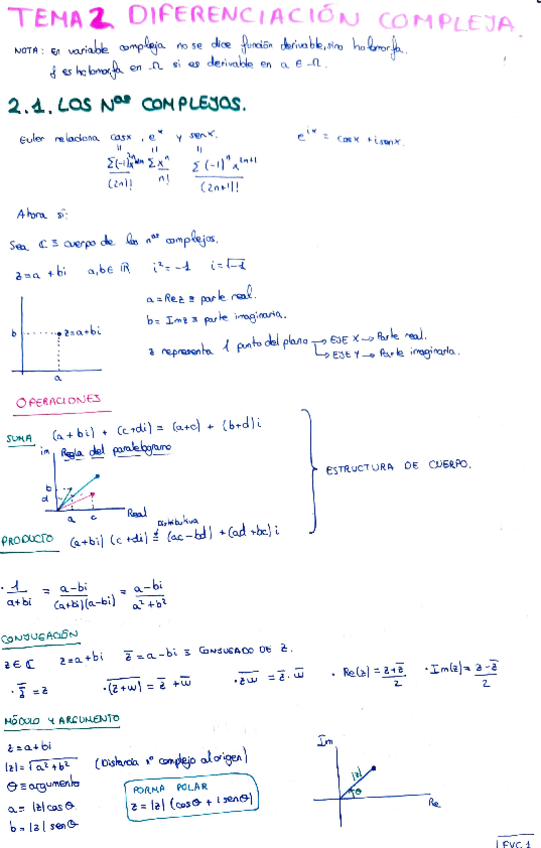 TEMA 2 DIFERENCIACIÓN COMPLEJA.
NOTA: en variable compleja no se dice función derivable, sino holomorfa.
f es holomorfa en Ω si es derivable en a ∈ Ω.
2.1. LOS Nºs COMPLEJOS.
Euler relaciona cosx, e^x y senx. e^{ix} = cosx + i senx.
Σ(-1)^n x^{2n}/(2n)! Σ x^n/n! Σ(-1)^n x^{2n+1}/(2n+1)!
Ahora si:
Sea ℂ ≡ cuerpo de los nos complejos.
z = a + bi a, b ∈ ℝ i² = -1 i = √-1
a = Re z ≡ parte real.
b = Im z ≡ parte imaginaria.
z representa 1 punto del plano → EJE X → Parte real.
→ EJE Y → Parte imaginaria.
b z=a+bi
a
OPERACIONES
SUMA (a+bi) + (c+di) = (a+c) + (b+d)i
im Regla del paralelogramo
ESTRUCTURA DE CUERPO.
b
d
a c Real
Distributiva
PRODUCTO (a+bi)(c+di) = (ac-bd) + (ad+bc)i
· 1/(a+bi) = (a-bi)/((a+bi)(a-bi)) = (a-bi)/(a²+b²)
CONJUGACIÓN
z ∈ ℂ z = a+bi z̄ = a-bi ≡ CONJUGADO DE z.
· z̿ = z · \overline{(z+w)} = z̄ + w̄ · \overline{zw} = z̄ · w̄ · Re(z) = (z+z̄)/2 · Im(z) = (z-z̄)/2
MÓDULO Y ARGUMENTO
z = a+bi
|z| = √(a²+b²) (Distancia nº complejo al origen)
θ ≡ argumento
a = |z| cosθ
b = |z| senθ
FORMA POLAR
z = |z| (cosθ + i senθ)
Im
|z|
θ
Re
FVC 1